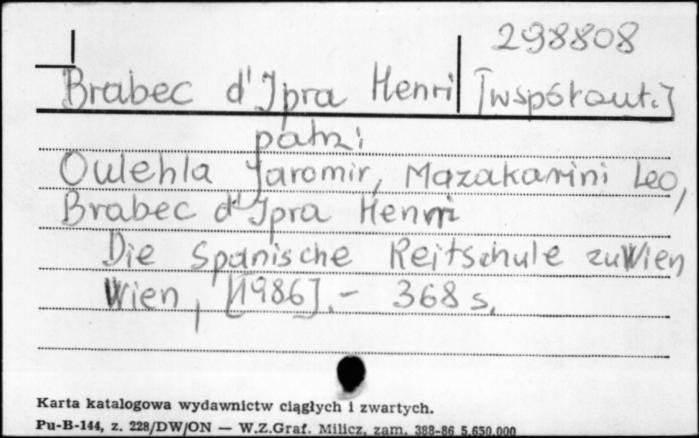 298808
Brabec d'Ipra Henri [współaut.]
patrz:
Oulehla Jaromir, Mazakarini Leo,
Brabec d'Ipra Henri
Die Spanische Reitschule zu Wien
Wien, [1986]. - 368 s.
Karta katalogowa wydawnictw ciągłych i zwartych.
Pu-B-144, z. 228/DW/ON — W.Z.Graf. Milicz, zam. 388-86 5.650.000